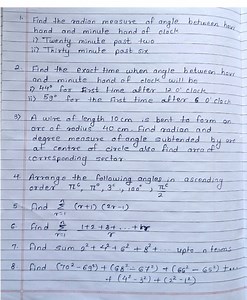 1. Find the radian measure of angle between hour
hand and minute hand of clock
i) Twenty minute past two
ii) Thirty minute past six
2. Find the exact time when angle between hour
and minute hand of clock will be
i) 44° for first time after 12 0' clock
ii) 59° for the first time after 6 0' clock
3) A wire of length 10 cm is bent to form an
arc of radius 40 cm. Find radian and
degree measure of angle subtended by arc
at centre of circle also find area of
corresponding sector
4 Arrange the following angles in ascending
order
5 find Σ (r+1) (2r-1)
r=1
6 Find Σ 1+2+3+...+r
r=1 r
7. Find sum 2²+4²+6²+8²+... upto n terms
8 find (70²-69²) + (68²-67²) + (66²-65²) +
+ (4²-3²) + (2²-1²)